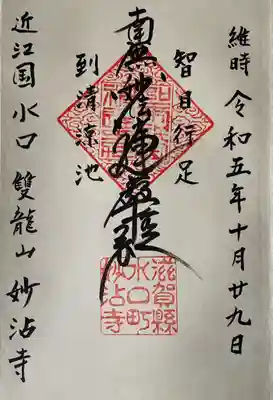 維時 令和五年十月廿九日
智目行足
南無妙法蓮華経
到清涼池
近江国水口 雙龍山 妙沾寺
滋賀縣
水口町
妙沾寺